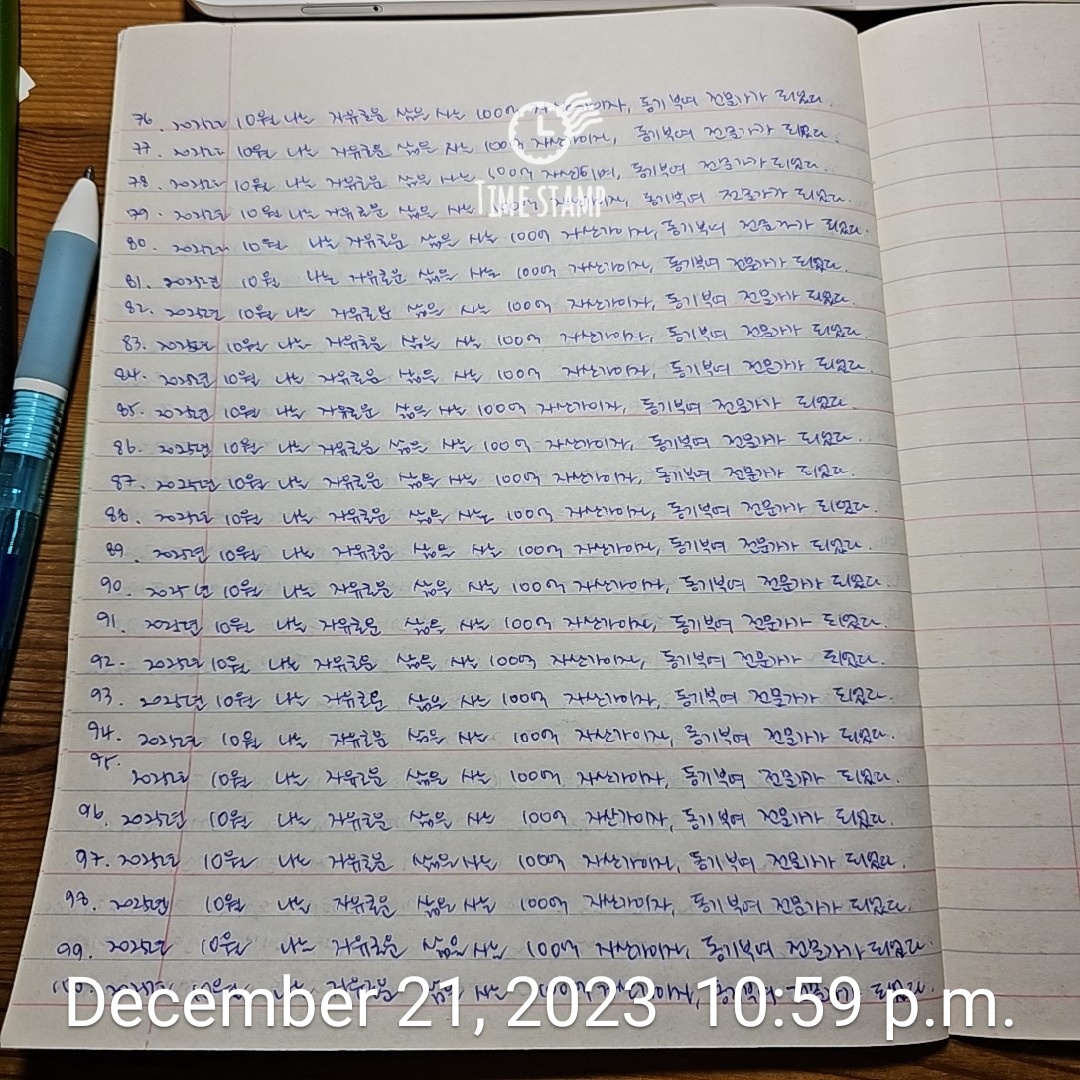 76. 2025년 10월 나는 자유로운 삶을 사는 100억 자산가이자, 동기부여 전문가가 되었다.
77. 2025년 10월 나는 자유로운 삶을 사는 100억 자산가이자, 동기부여 전문가가 되었다.
78. 2025년 10월 나는 자유로운 삶을 사는 100억 자산가이며, 동기부여 전문가가 되었다.
TIME STAMP
79. 2025년 10월 나는 자유로운 삶을 사는 100억 자산가이자, 동기부여 전문가가 되었다.
80. 2025년 10월 나는 자유로운 삶을 사는 100억 자산가이자, 동기부여 전문가가 되었다.
81. 2025년 10월 나는 자유로운 삶을 사는 100억 자산가이자, 동기부여 전문가가 되었다.
82. 2025년 10월 나는 자유로운 삶을 사는 100억 자산가이자, 동기부여 전문가가 되었다.
83. 2025년 10월 나는 자유로운 삶을 사는 100억 자산가이자, 동기부여 전문가가 되었다.
84. 2025년 10월 나는 자유로운 삶을 사는 100억 자산가이자, 동기부여 전문가가 되었다.
85. 2025년 10월 나는 자유로운 삶을 사는 100억 자산가이자, 동기부여 전문가가 되었다.
86. 2025년 10월 나는 자유로운 삶을 사는 100억 자산가이자, 동기부여 전문가가 되었다.
87. 2025년 10월 나는 자유로운 삶을 사는 100억 자산가이자, 동기부여 전문가가 되었다.
88. 2025년 10월 나는 자유로운 삶을 사는 100억 자산가이자, 동기부여 전문가가 되었다.
89. 2025년 10월 나는 자유로운 삶을 사는 100억 자산가이자, 동기부여 전문가가 되었다.
90. 2025년 10월 나는 자유로운 삶을 사는 100억 자산가이자, 동기부여 전문가가 되었다.
91. 2025년 10월 나는 자유로운 삶을 사는 100억 자산가이자, 동기부여 전문가가 되었다.
92. 2025년 10월 나는 자유로운 삶을 사는 100억 자산가이자, 동기부여 전문가가 되었다.
93. 2025년 10월 나는 자유로운 삶을 사는 100억 자산가이자, 동기부여 전문가가 되었다.
94. 2025년 10월 나는 자유로운 삶을 사는 100억 자산가이자, 동기부여 전문가가 되었다.
95. 2025년 10월 나는 자유로운 삶을 사는 100억 자산가이자, 동기부여 전문가가 되었다.
96. 2025년 10월 나는 자유로운 삶을 사는 100억 자산가이자, 동기부여 전문가가 되었다.
97. 2025년 10월 나는 자유로운 삶을 사는 100억 자산가이자, 동기부여 전문가가 되었다.
98. 2025년 10월 나는 자유로운 삶을 사는 100억 자산가이자, 동기부여 전문가가 되었다.
99. 2025년 10월 나는 자유로운 삶을 사는 100억 자산가이자, 동기부여 전문가가 되었다.
100. 2025년 10월 나는 자유로운 삶을 사는 되었다.
December 21, 2023 10:59 p.m.